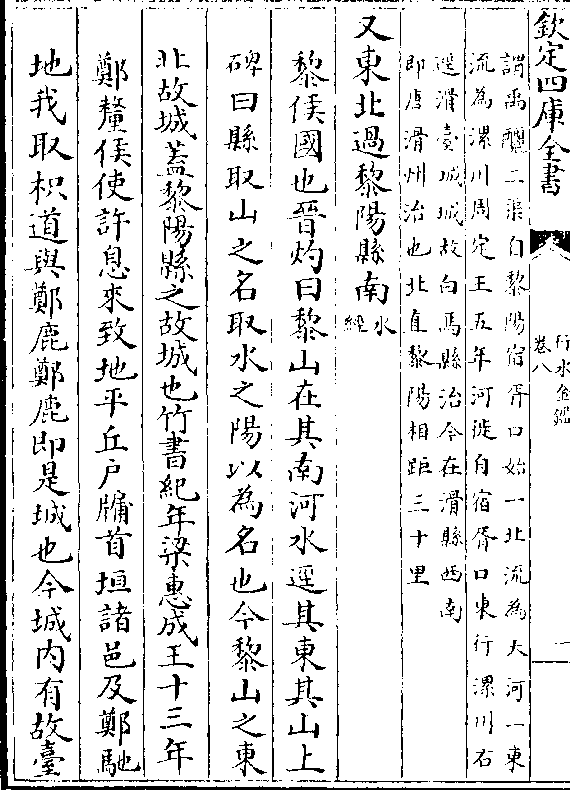 欽定四庫全書
行水金鑑
卷八
一
謂禹釃二渠自黎陽宿胥口始一北流為大河一東
流為漯川周定王五年河徙自宿胥口東行漯川右
逕滑臺城城故白馬縣治今在滑縣西南
即唐滑州治也北直黎陽相距三十里
又東北過黎陽縣南水經
黎侯國也晉灼曰黎山在其南河水逕其東其山上
碑曰縣取山之名取水之陽以為名也今黎山之東
北故城蓋黎陽縣之故城也竹書紀年梁惠成王十三年
鄭釐侯使許息來致地平丘户牖首垣諸邑及鄭馳
地我取枳道與鄭鹿鄭鹿即是城也今城内有故臺